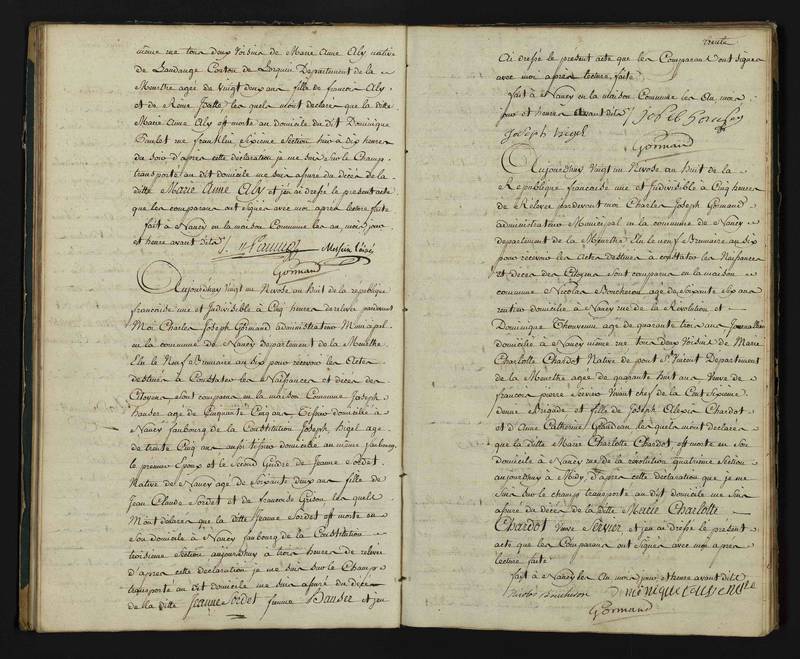 même rue tous deux voisins de Marie Anne Aly native
de Landange Canton de Lorquin Departement de la
Meurthe agée de vingt deux ans fille de françois Aly
et de Reine les quels m'ont declaré que la ditte
Marie Anne Aly est morte au domicile du dit Dominique
rue franklin sixieme Section hier à dix heures
du soir d'après cette déclaration je me suis sur le Champ
transporté au dit domicile me suis assuré du décès de la
ditte Marie Anne Aly et j'en ai dressé le present acte
que les comparans ont signés avec moi après lecture faite
fait à Nancy en la maison Commune les an, mois, jour
et heure avant dits
Gormand
Aujourdhuy vingt un Nivose an huit de la republique
francoise une et Indivisible à Cinq heures de relevée pardevant
Moi Charles Joseph Gormand administrateur Municipal
en la commune de Nancy Departement de la Meurthe
Elu le Neuf Brumaire an six pour recevoir les Actes
destinés à Constater les Naissances et décès des
Citoyens, sont comparus en la maison Commune Joseph
hauser agé de Cinquante Cinq ans Tissier domicilié à
Nancy faubourg de la Constitution Joseph Higel agé
de trente Cinq ans aussi tissier domicilié au même faubourg
le premier Epoux et le Second Gendre de Jeanne Sordet
Native de Nancy agée de Soixante deux ans fille de
Jean Claude Sordet et de francoise Grison les quels
M'ont déclaré que la ditte Jeanne Sordet est morte en
Son domicile à Nancy faubourg de la Constitution
troisieme Section aujourdhuy à trois heures de relevée
d'apres cette déclaration je me suis sur le Champ
transporté au dit domicile me suis assuré du décès
de la ditte Jeanne Sordet femme Hauser et j'en
trente
ai dressé le present acte que les Comparans ont signés
avec moi après lecture faite
fait à Nancy en la maison Commune les an, mois
jour et heure avant dits
Joseph higel
Gormand
Aujourdhuy vingt un Nivose an huit de la
Republique francoise une et Indivisible à Cinq heures
de Relevée pardevant moi Charles Joseph Gormand
administrateur Municipal en la commune de Nancy
departement de la Meurthe Elu le neuf Brumaire an six
pour recevoir les Actes destinés à constater les Naissances
et décès des Citoyens sont comparus en la maison
commune Nicolas Boucheron agé de Soixante Six ans
rentier domicilié à Nancy rue de la Révolution et
Dominique Thouvenin agé de quarante trois ans Journallier
domicilié à Nancy même rue tous deux Voisins de Marie
Charlotte Chardot Native de pont St Vincent Departement
de la Meurthe agée de quarante huit ans Veuve de
francois pierre Servier vivant chef de la Cent Sixieme
demie Brigade et fille de Joseph Alexis Chardot
et d'Anne Catherine les quels m'ont déclaré
que la ditte Marie Charlotte Chardot est morte en Son
domicile à Nancy rue de la révolution quatrieme Section
aujourdhuy à Midy, d'après cette déclaration je me
Suis Sur le champ transporté au dit domicile me Suis
assuré du décès de la ditte Marie Charlotte
Chardot Veuve Servier et j'en ai dressé le present
acte que les Comparans ont Signés avec moi apres
lecture faite
fait à Nancy les An, mois jour et heure avant dits
Nicolas Boucheron
Gormand